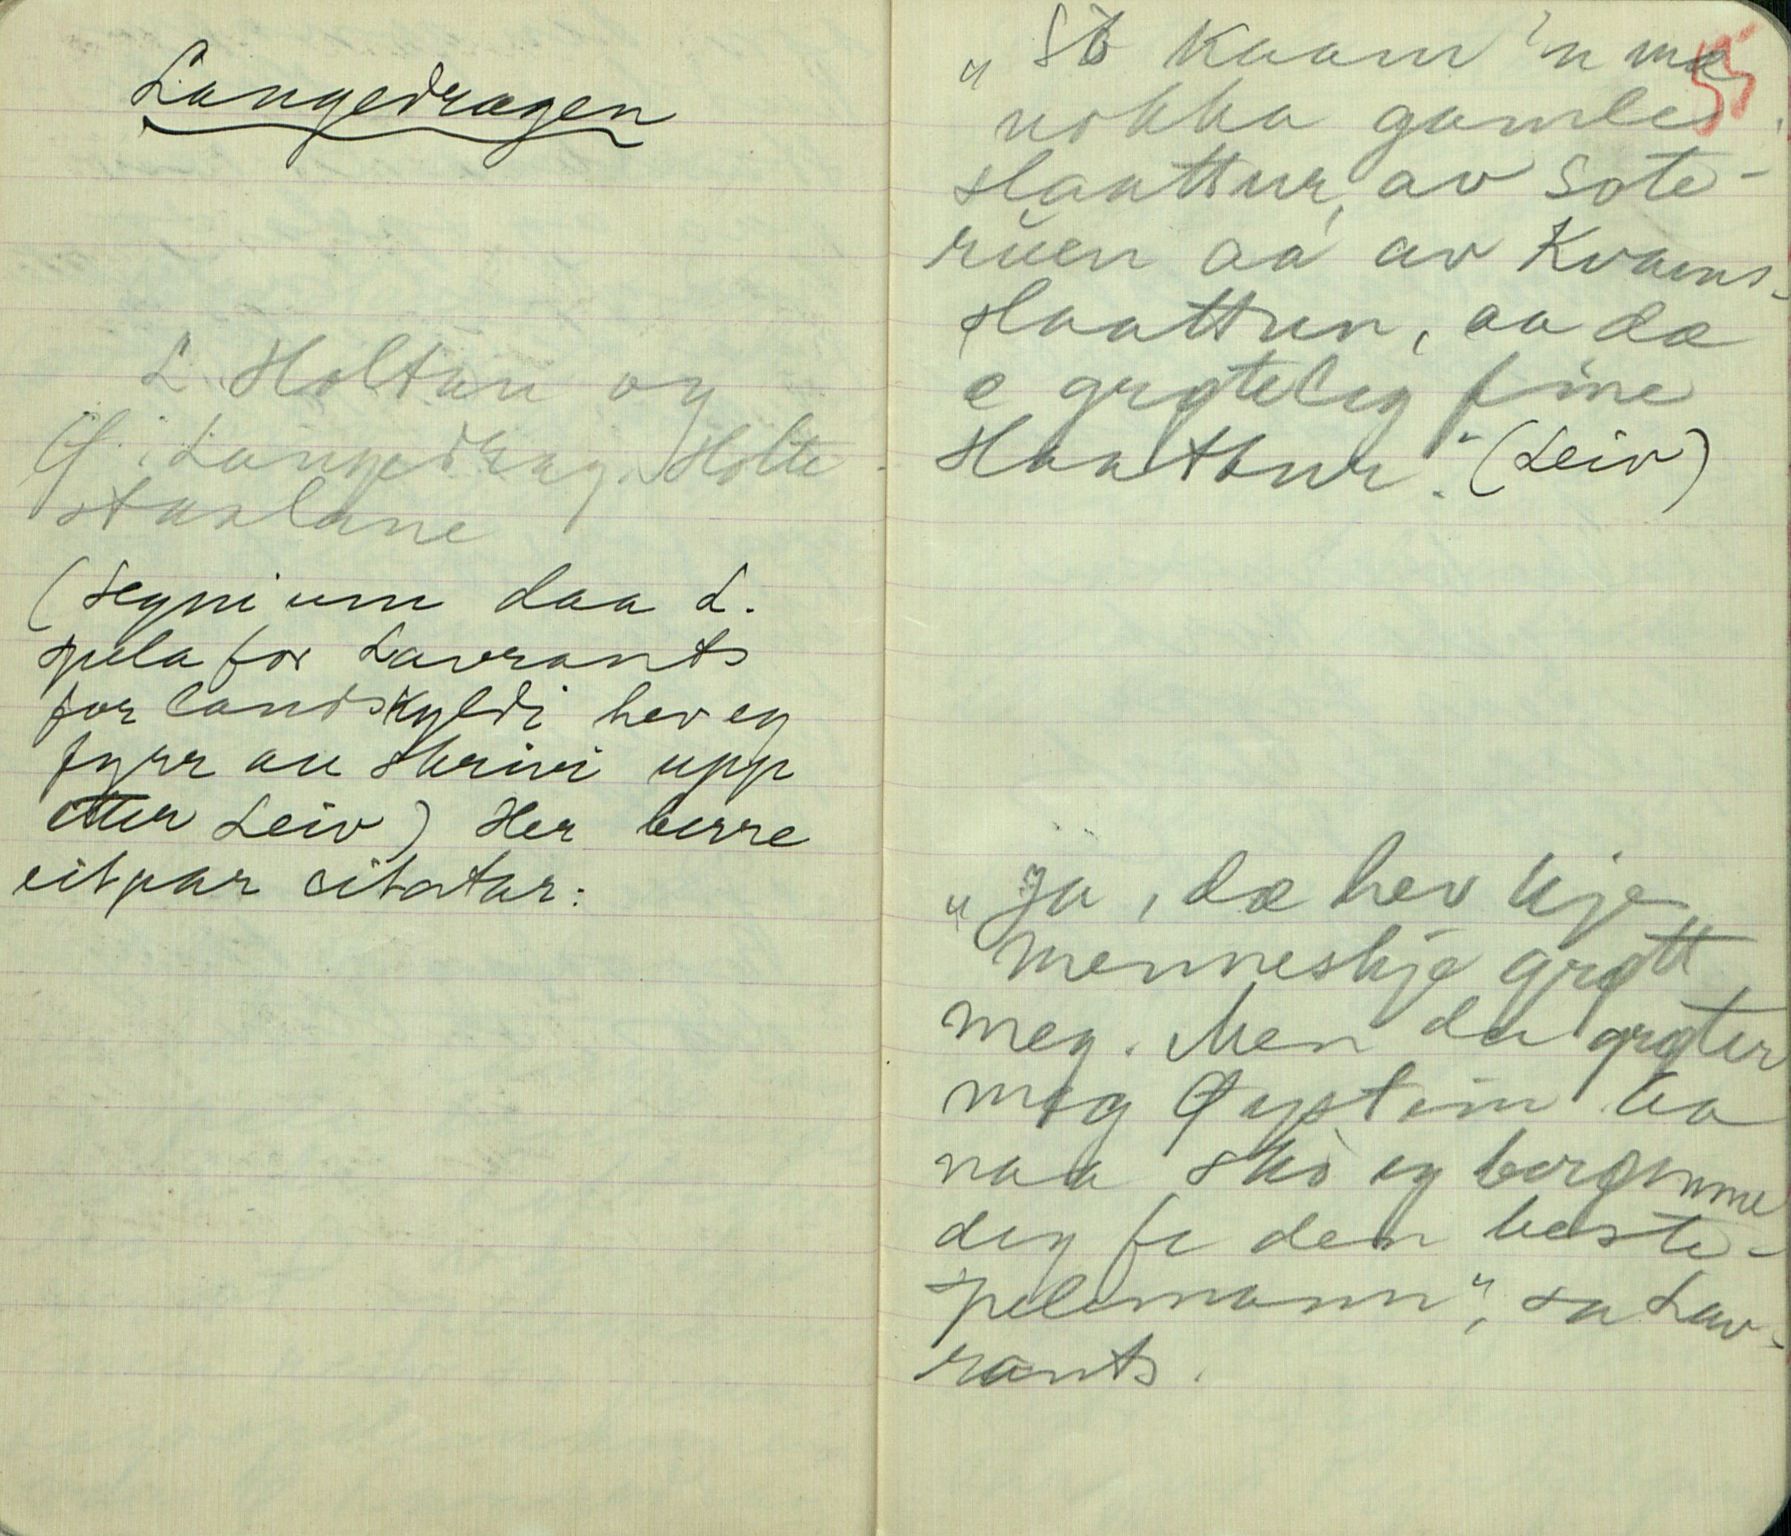 Langedragen
L. Holtan og
Ø. Langedrag. Holte-
staulane
(Segni um daa L.
spela for Lavrants
for landskyldi hev eg
fyrr au skrivi upp
etter Leiv) Her berre
eit par sitatar:
55
"Så kaam 'n mæ
nokka gamle
slaattur, av Sote-
rüen aa av Kvams-
slaattun, aa dæ
æ grøteleg fine
slaattur." (Leiv)
"Ja, dæ hev kje
menneskje grøtt
meg. Men du grøter
meg Øystein. Aa
naa sko eg berømme
deg fe den beste
spelemann", sa Lav-
rants.